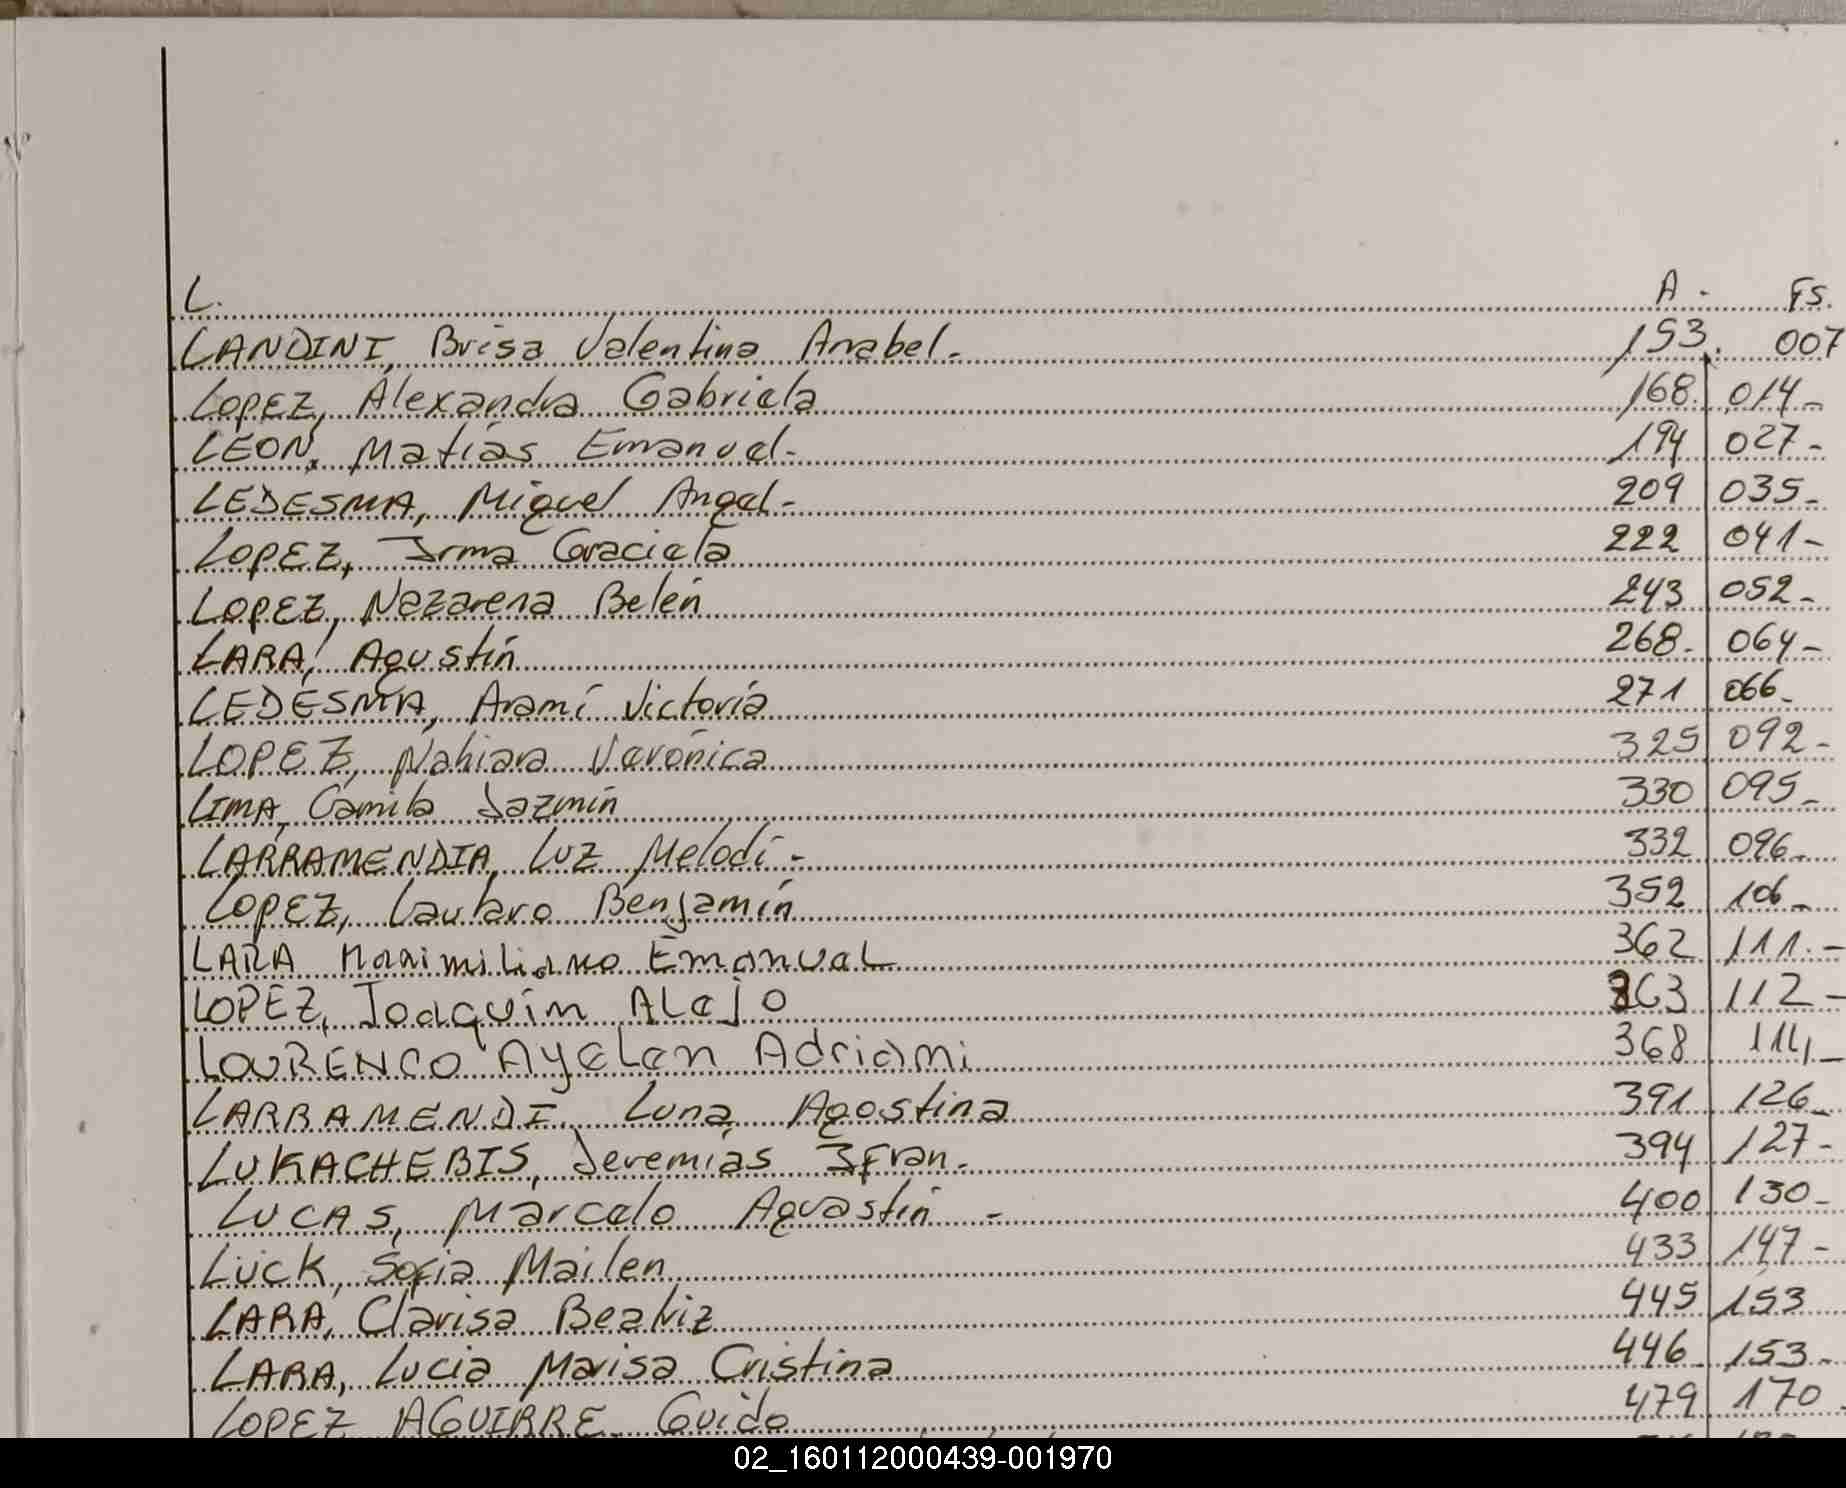 L. A. Fs.
LANDINI, Brisa Valentina Anabel. 153. 007
LOPEZ, Alexandra Gabriela 168. 014-
LEON, Matías Emanuel- 194 027-
LEDESMA, Miguel Angel- 209 035-
LOPEZ, Irma Graciela 222 041-
LOPEZ, Nazarena Belén 243 052-
LARA, Agustín 268. 064-
LEDESMA, Aramí Victoria 271 066-
LOPEZ, Nahiara Verónica 325 092-
LIMA, Camila Jazmín 330 095-
LARRAMENDIA, Luz Melodí- 332 096-
LOPEZ, Lautaro Benjamín 352 106-
LARA Maximiliano Emanuel 362 111.-
LOPEZ, Joaquín Alejo 363 112-
LOURENCO Ayelen Adriami 368 114-
LARRAMENDI, Luna Agostina 391 126-
LUKACHEBIS, Jeremías Ifran. 394 127-
LUCAS, Marcelo Aguastin - 400 130-
LÜCK, Sofia Mailen 433 147-
LARA, Clarisa Beatriz 445 153
LARA, Lucia Marisa Cristina 446 153-
LOPEZ AGUIRRE Guido 479 170
02_160112000439-001970